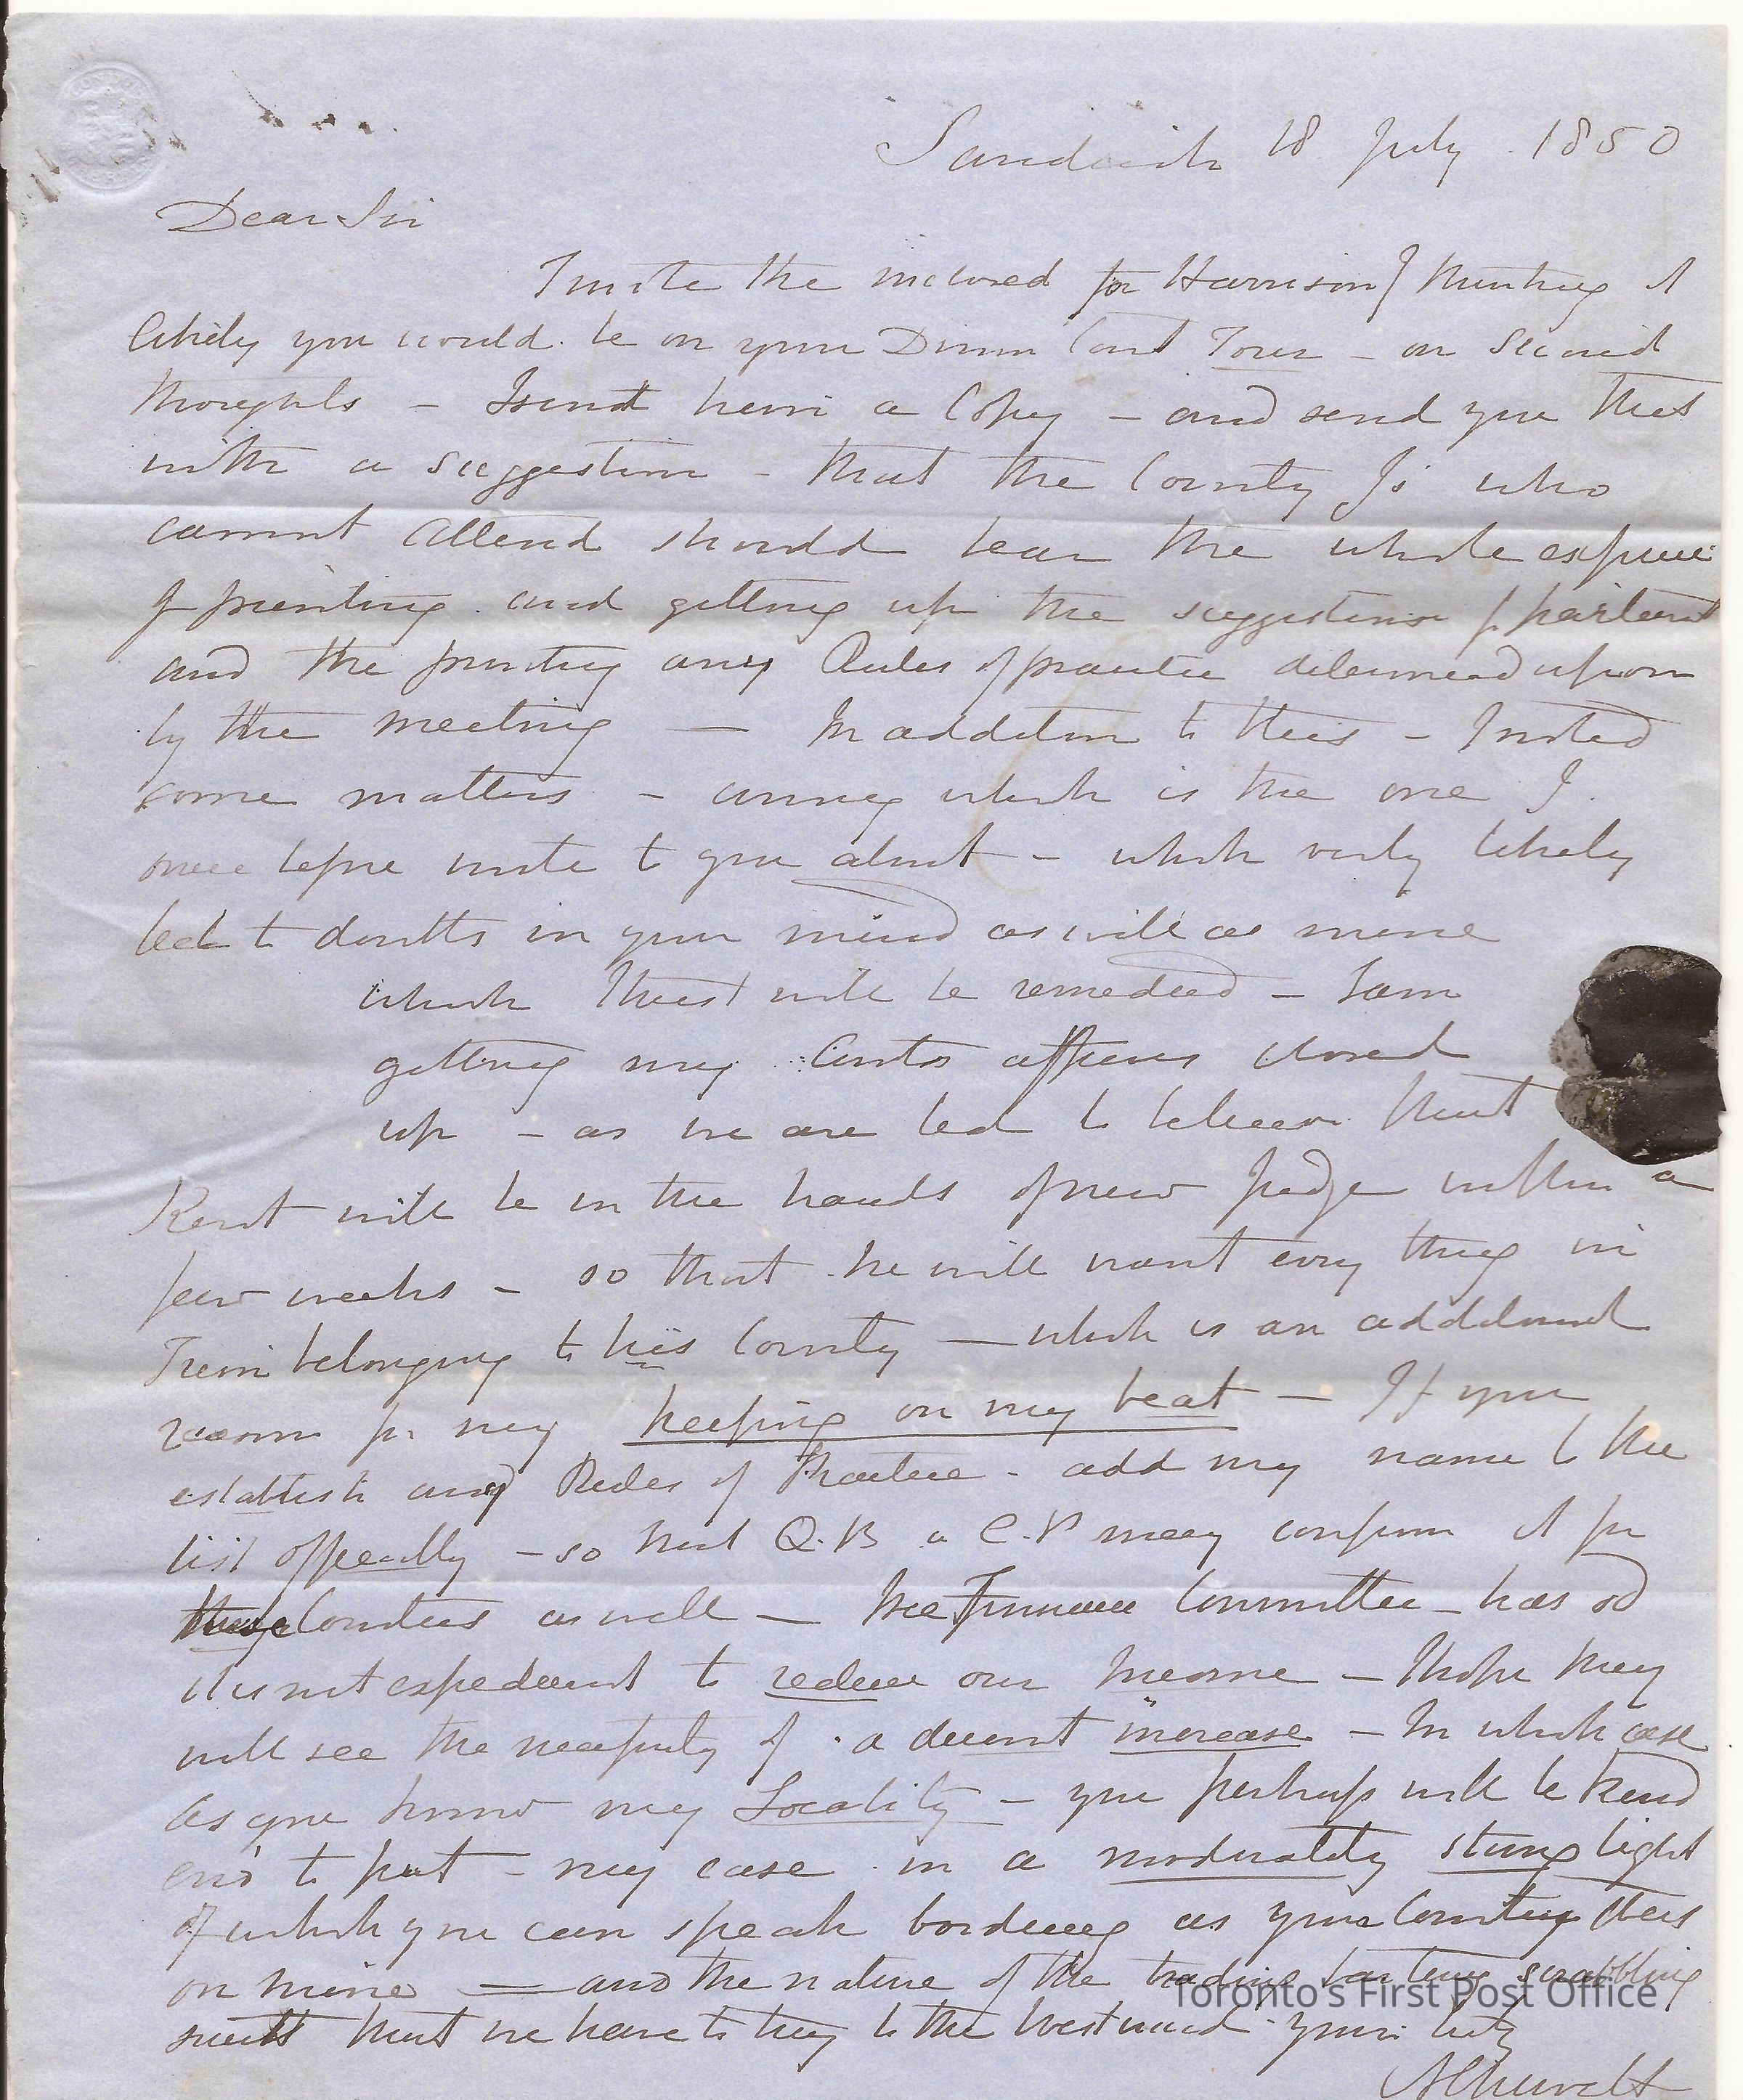 Sandwich 18 July 1850
Dear Sir
I wrote the inclosed for Harrison thinking it
likely you would be on your Divion Court Tour – on second
thoughts – I send him a Copy – and send you that
with a suggestion – that the County Js who
cannot attend should bear the whole expense
of printing and getting up the suggestions for parliamt
and the printing any Rules of practice determined upon
by the meeting — In addition to this – I noted
some matters – among which is the one I
once before wrote to you about – which very likely
led to doubts in your mind as well as mine
which I trust will be remedied – I am
getting my affairs closed
up – as we are led to believe that
Kent will be in the hands of new Judge within a
few weeks – so that he will want every thing in
Trim belonging to his County — which is an additional
reason for my keeping on my beat — If you
establish any Rules of Practice – add my name to the
list officially – so that Q.B or C.P may confirm it for
these Counties as well — The Finance Committee – has sd
it is not expedient to reduce our Income – I hope they
will see the necessity of a decent increase – In which case
as you know my Locality – you perhaps will be kind
eno to put – my case in a moderately strong light
of which you can speak bordering as your County does
on mine — and the nature of the trading bartering scrabbling
suits that we have to try to the Westward yours truly
A Chewett
Toronto's First Post Office